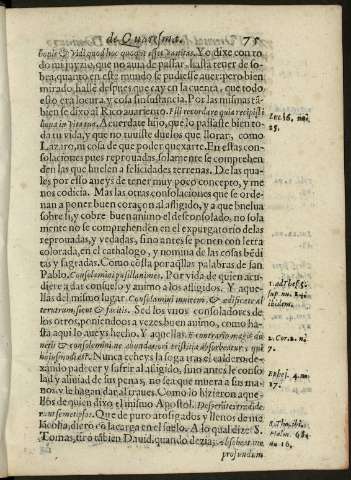 de Quaresma. 75
bonis & vidi quod hoc quoque esset vanitas. Yo dixe con to
do mi juyzio, que no auia de passar, hasta tener de so-
bra, quanto en este mundo se pudiesse auer: pero bien
mirado, hallé despues, que cay en la cuenta, que todo
esto era locura, y cosa sin sustancia. Por las mismas tã-
bien se dixo al Rico auariento. Fili recordare quia recepisti
bona in vita tua. Acuerdate hijo, que lo passaste bien to-
da tu vida, y que no tuuiste duelos que llorar, como
Lazaro, ni cosa de que poder quexarte. En estas con-
solaciones pues reprouadas, solamente se comprehen
den las que huelen a felicidades terrenas. De las qua-
les por esso aueys de tener muy poco concepto, y me
nos codicia. Mas las otras consolaciones que se orde-
nan a poner buen coraçon al afligido, y a que buelua
sobre si, y cobre buen animo el desconsolado, no sola
mente no se comprehenden en el expurgatorio delas
reprouadas, y vedadas, sino antes se ponen con letra
colorada, en el cathalogo, y nomina de las cosas bēdi
tas y sagradas. Como cōsta por aq̃llas palabras de san
Pablo. Consolamini pusillanimes. Por vida de quien acu-
diere a dar consuelo y animo a los afligidos. Y aque-
llas del mismo lugar. Consolamini inuicem & ædificate al
terutrum sicut & facitis. Sed los vnos consoladores de
los otros, poniendoos a vezes buen animo, como ha-
sta aqui lo aueys hecho. Y aquellas. E contrario magis do
netis & consolemini ne abundantiori tristitia absorbeatur qui
huiusmodi est. Nunca echeys la soga tras el caldero, de-
xando padecer y sufrir al afligido, sino antes le conso-
lad y aliuiad de sus penas, no sea que muera a sus ma-
nos, y le hagan dar al traues. Como lo hizieron aque-
llos de quien dixo el mismo Apostol.
Que de puro afligidos y llenos de me
lācolia, dierō cō la carga en el suelo. A lo qual dize S.
Tomas, tiro tābien Dauid, quando dezia,
profundum
Luc. 16. nu.
25.
ibidem.
2. Cor. 2. nu.
7.
Ephes. 4. nu.
17.